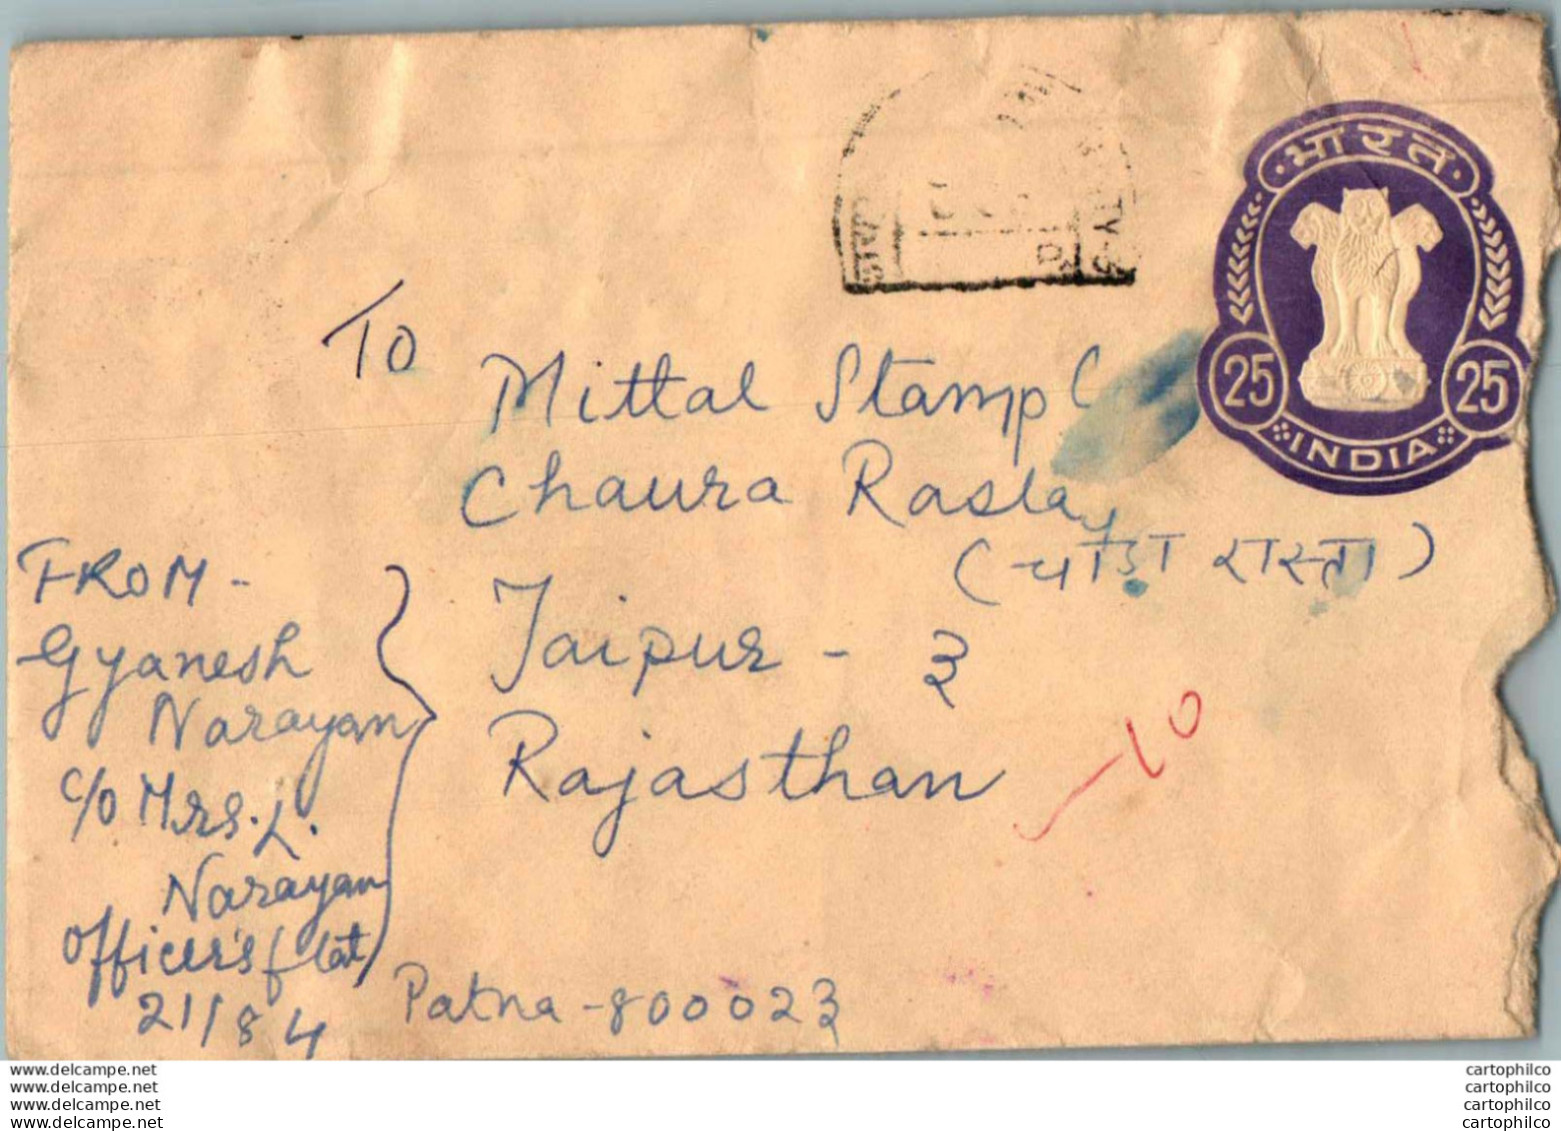 भारत
25 25
INDIA
To
Mittal Stamp C
Chaura Rasta,
(चौड़ा रास्ता)
Jaipur - 3
Rajasthan
-10
FROM -
Gyanesh
Narayan
c/o Mrs. L.
Narayan
Officer's flat
21/84
Patna - 800023
www.delcampe.net
www.delcampe.net
www.delcampe.net
www.delcampe.net
cartophilco
cartophilco
cartophilco
cartophilco